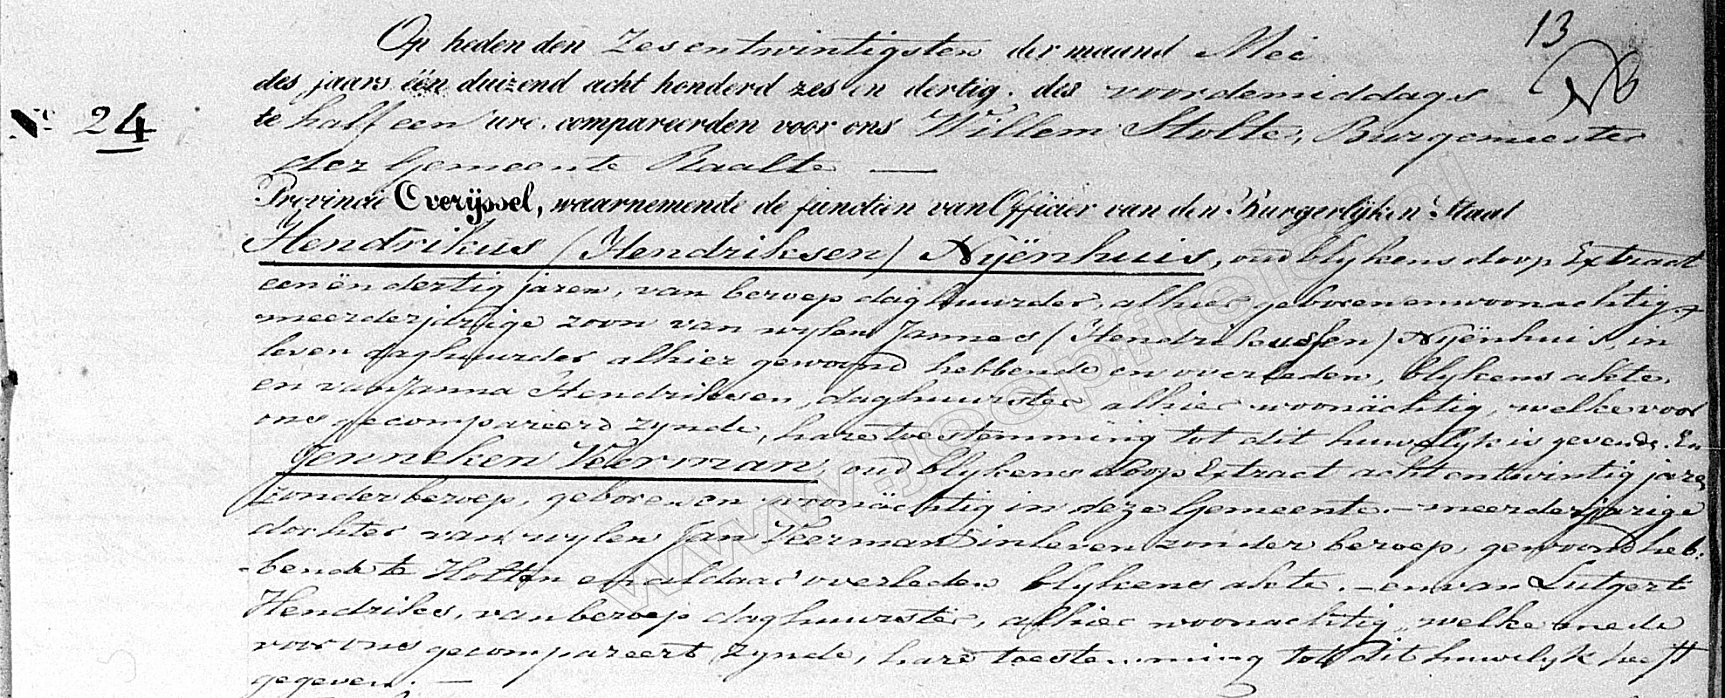 13
Op heden den Zesentwintigsten der maand Mei
des jaars één duizend acht honderd zes en dertig, des voordemiddags
No 24
te half een ure compareerden voor ons Willem Stolte, Burgemeester
der Gemeente Raalte —
Provincie Overijssel, waarnemende de functien van Officier van den Burgerlijken Staat
Hendrikus (Hendriksen) Nyënhuis, oud blykens doop Extract
eenën dertig jaren, van beroep daghuurder, alhier geboren en woonachtig,
meerderjarige zoon van wylen Jannes (Hendrikussen) Nyënhuis in
leven daghuurder alhier gewoond hebbende en overleden, blykens akte,
en van Janna Hendriksen, daghuurster alhier woonächtig, welke voor
ons gecompareerd zynde, hare toestemming tot dit huwelyk is gevende. En
Jenneken Veerman, oud blykens doop Extract achtentwintig jaren
zonder beroep, geboren en woonächtig in deze Gemeente. — meerderjarige
dochter van wylen Jan Veerman in leven zonder beroep, gewoond heb-
bende te Holten en aldaar overleden blykens akte. — en van Lutgert
Hendriks, van beroep daghuurster, alhier woonachtig, welke mede
voor ons gecompareert zynde, hare toestemming tot dit huwelyk heeft
gegeven. —